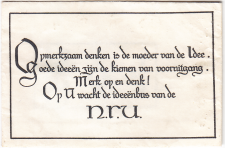 Opmerkzaam denken is de moeder van de Idee.
Goede ideeën zijn de kiemen van vooruitgang.
Merk op en denk!
Op U wacht de ideeënbus van de
N.F.U.